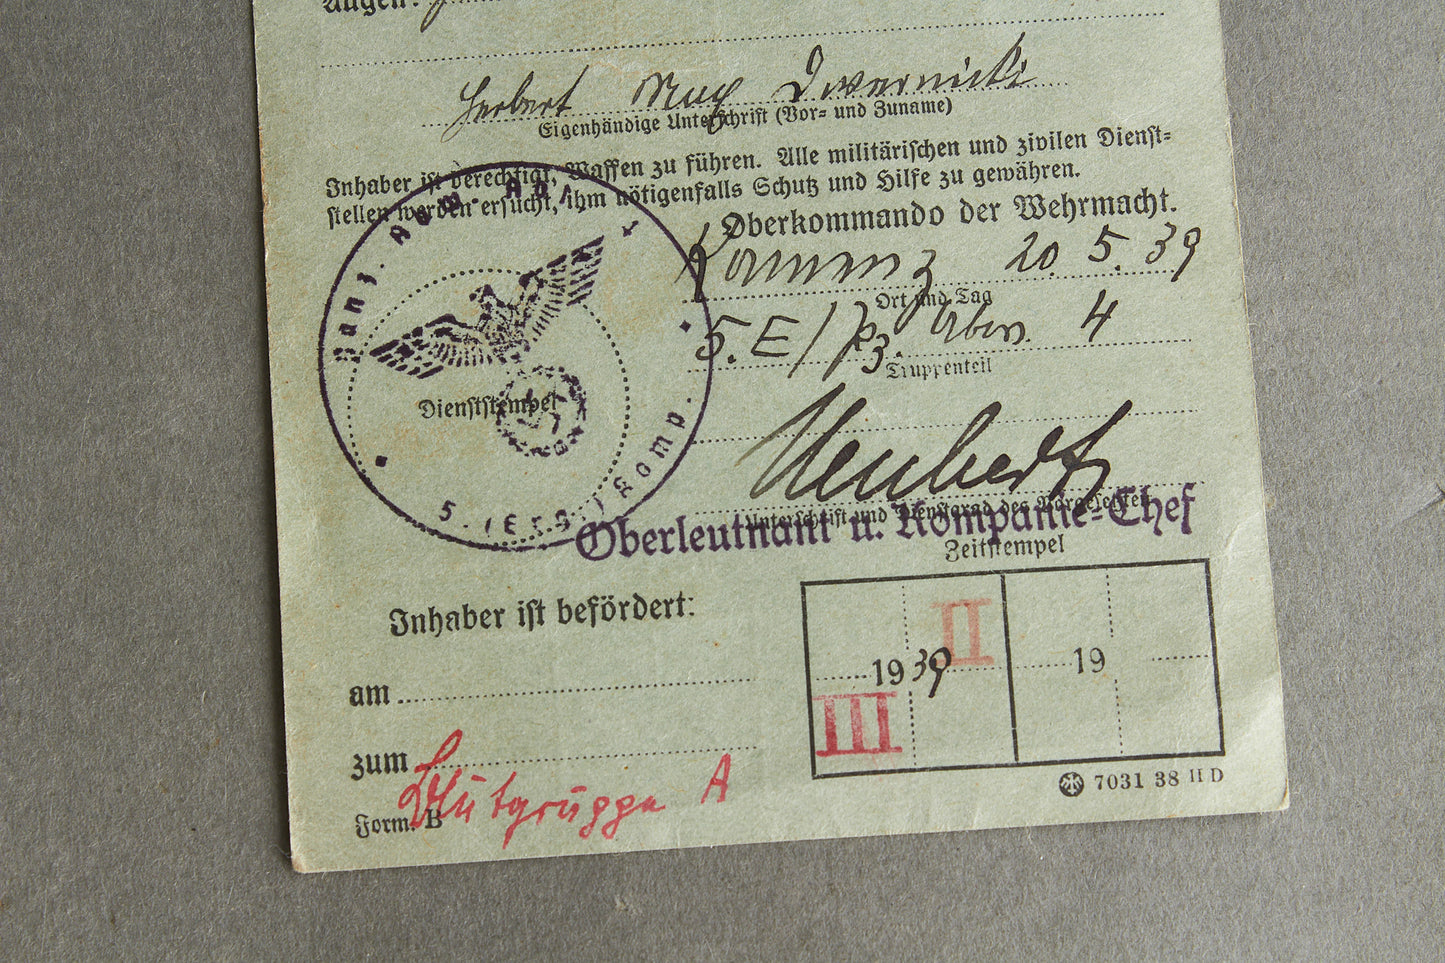 Augen:
Herbert Max Dwernicki
Eigenhändige Unterschrift (Vor- und Zuname)
Inhaber ist berechtigt, Waffen zu führen. Alle militärischen und zivilen Dienst-
stellen werden ersucht, ihm nötigenfalls Schutz und Hilfe zu gewähren.
Oberkommando der Wehrmacht.
Kamenz 20. 5. 39
Ort und Tag
5. E/Pz. Abw. 4
Truppenteil
Panz. Abw. Abt.
Dienststempel
5. (Ers.) Komp.
Unterschrift und Dienstgrad des Vorgesetzten
Oberleutnant u. Kompanie-Chef
Zeitstempel
Inhaber ist befördert:
II
1939
19
am
III
zum
Blutgruppe A
Form. B
7031 38 II D